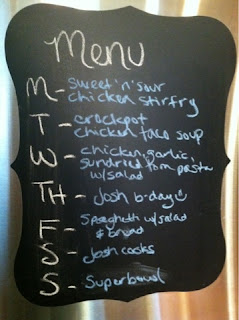 Menu
M - sweet 'n' sour
chicken stirfry
T - crockpot
chicken taco soup
W - chicken, garlic,
sundried tom pasta
w/salad
TH - Josh b-day
F - Spaghetti w/salad
& bread
S - Josh cooks
S - Superbowl